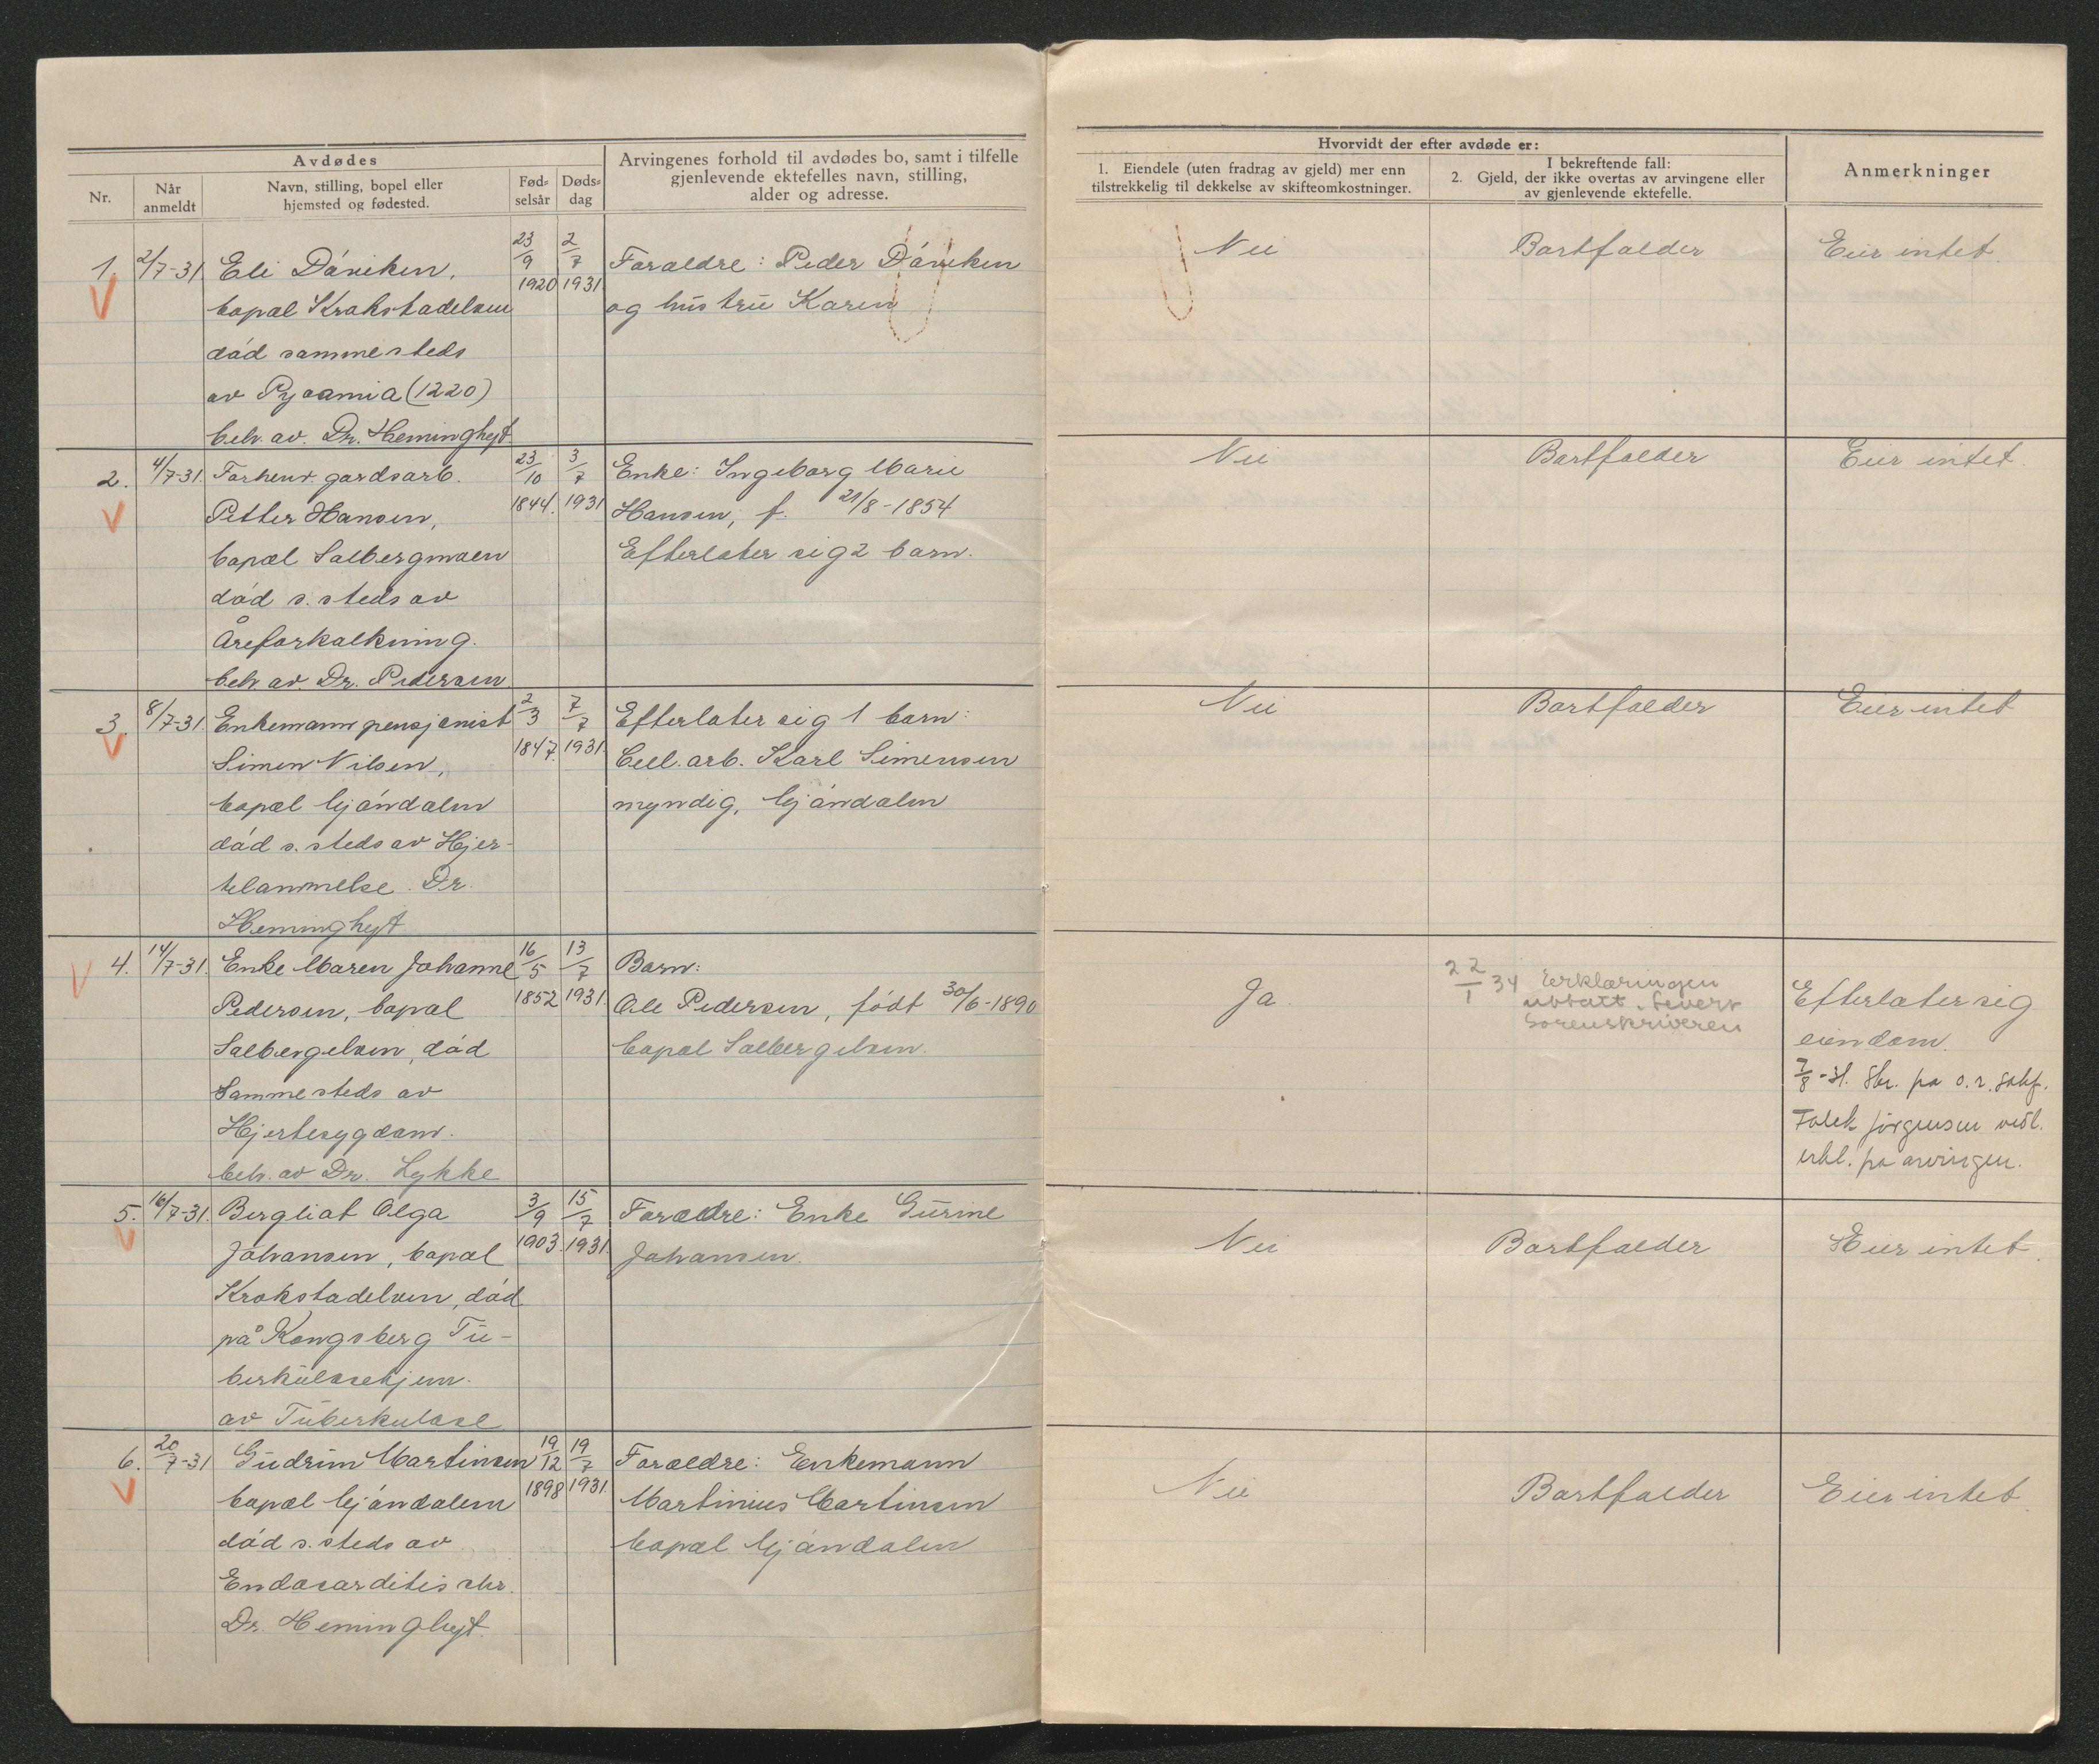 Avdødes
Nr.
Når
anmeldt
Navn, stilling, bopel eller
hjemsted og fødested.
Fød-
selsår
Døds-
dag
Arvingenes forhold til avdødes bo, samt i tilfelle
gjenlevende ektefelles navn, stilling,
alder og adresse.
Hvorvidt der efter avdøde er:
1. Eiendele (uten fradrag av gjeld) mer enn
tilstrekkelig til dekkelse av skifteomkostninger.
I bekreftende fall:
2. Gjeld, der ikke overtas av arvingene eller
av gjenlevende ektefelle.
Anmerkninger
1. 2/7-31. Eli Døviken, 23/9 1920 2/7 1931 Foraeldre: Peder Døviken Nei Bortfalder Eier intet.
bopæl Krokstadelven og hustru Karen
død sammesteds
av Pyoamia (1220)
beh. av. Dr. Heminghyt.
2. 4/7-31. Forhenv. gardsarb. 23/10 1844. 3/7 1931 Enke: Ingeborg Marie Nei Bortfalder Eier intet.
Petter Hansen, Hansen, f. 21/8-1854
bopæl Solbergmoen Efterlater sig 2 barn.
død s. steds av
Åreforkalkning.
beh. av. Dr. Pedersen
3. 8/7-31. Enkemann pensjonist 2/3 1847. 7/7 1931. Efterlater sig 1 barn: Nei Bortfalder Eier intet
Simen Nilsen, Cell. arb. Karl Simensen
bopæl Mjøndalen myndig, Mjøndalen
død s. steds av Hjer-
telammelse. Dr.
Heminghyt
4. 14/7-31. Enke Maren Johanne 16/5 1852 13/7 1931. Barn: Ja. 22/1 34 Erklæringen
Pedersen, bopæl Ole Pedersen, født 30/6-1890 utsatt. Severt Efterlater sig
Solbergelven, død bopæl Solbergelven. Sorenskriveren eiendom.
Sammesteds av 7/8-31. Skr. fra o.r. sakf.
Hjertesygdom. Falck Jørgensen vedl.
beh. av Dr. Lykke erkl. fra arvingen.
5. 16/7-31. Bergliot Olga 3/9 1903. 15/7 1931. Foraeldre: Enke Gurine Nei Bortfalder Eier intet.
Johansen, bopæl Johansen.
Krokstadelven, død
på Kongsberg Tu-
berkulosehjem.
av Tuberkulose
6. 20/7-31 Gudrun Martinsen 19/12 1898 19/7 1931. Foraeldre: Enkemann Nei Bortfalder Eier intet.
bopæl Mjøndalen Martinius Martinsen
død s. steds av bopæl Mjøndalen
Endocarditis chr.
Dr. Heminghyt.